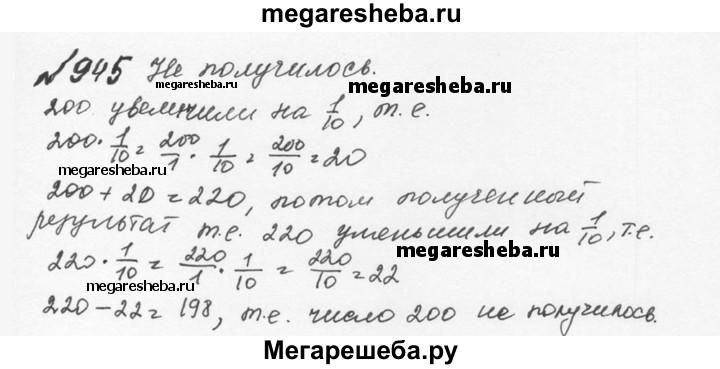 megaresheba.ru
№945 Не получилось.
megaresheba.ru
megaresheba.ru
200 увеличили на 1/10, т.е.
200 · 1/10 = 200/1 · 1/10 = 200/10 = 20
megaresheba.ru
200 + 20 = 220, потом полученный
результат т.е. 220 уменьшили на 1/10, т.е.
megaresheba.ru
220 · 1/10 = 220/1 · 1/10 = 220/10 = 22
220 - 22 = 198, т.е. число 200 не получилось.
Мегарешеба.ру